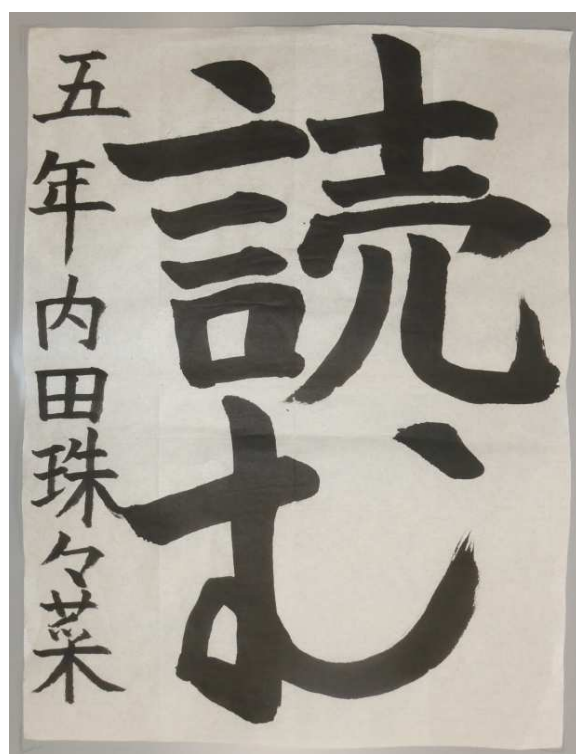 読む
五年内田珠々菜